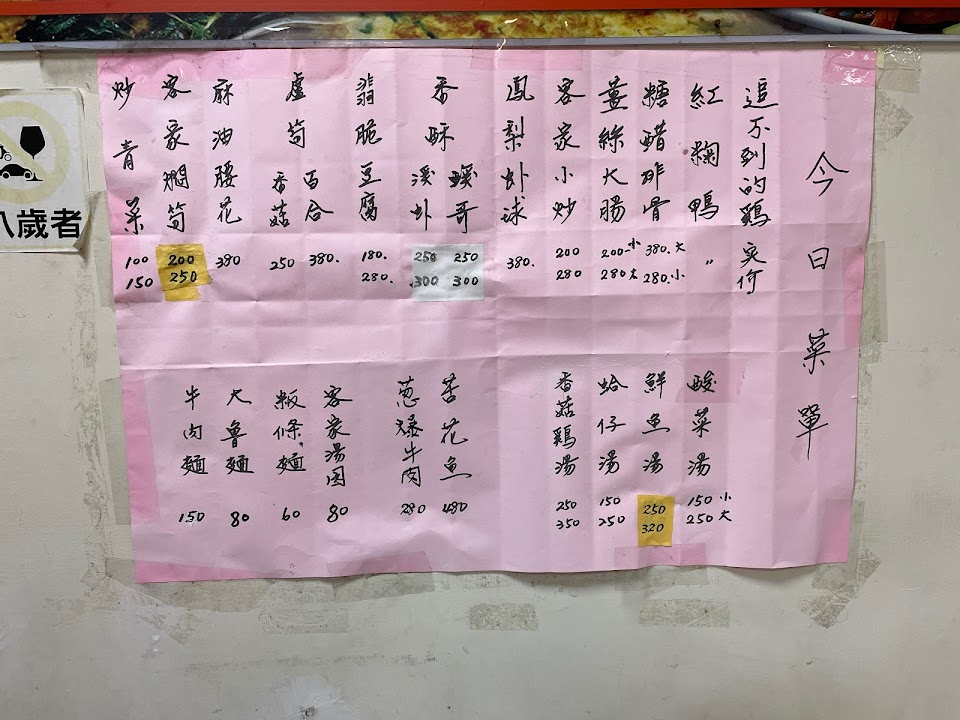 今日菜單
追不到的鷄 实价
紅麯鴨 〃
糖醋排骨 380.大 280.小
薑絲大腸 200小 280大
客家小炒 200 280
鳳梨虾球 380.
香酥
溪哥 250 300
溪虾 250 300
翡脆豆腐 180. 280.
盧筍
百合 380.
香菇 250
麻油腰花 390
客家焖筍 200 250
炒青菜 100 150
酸菜湯 150小 250大
鮮魚湯 250 320
蛤仔湯 150 250
香菇鷄湯 250 350
苦花魚 480
葱爆牛肉 280
客家湯圆 80
粄條,麵 60
大魯麵 80
牛肉麵 150
八歲者